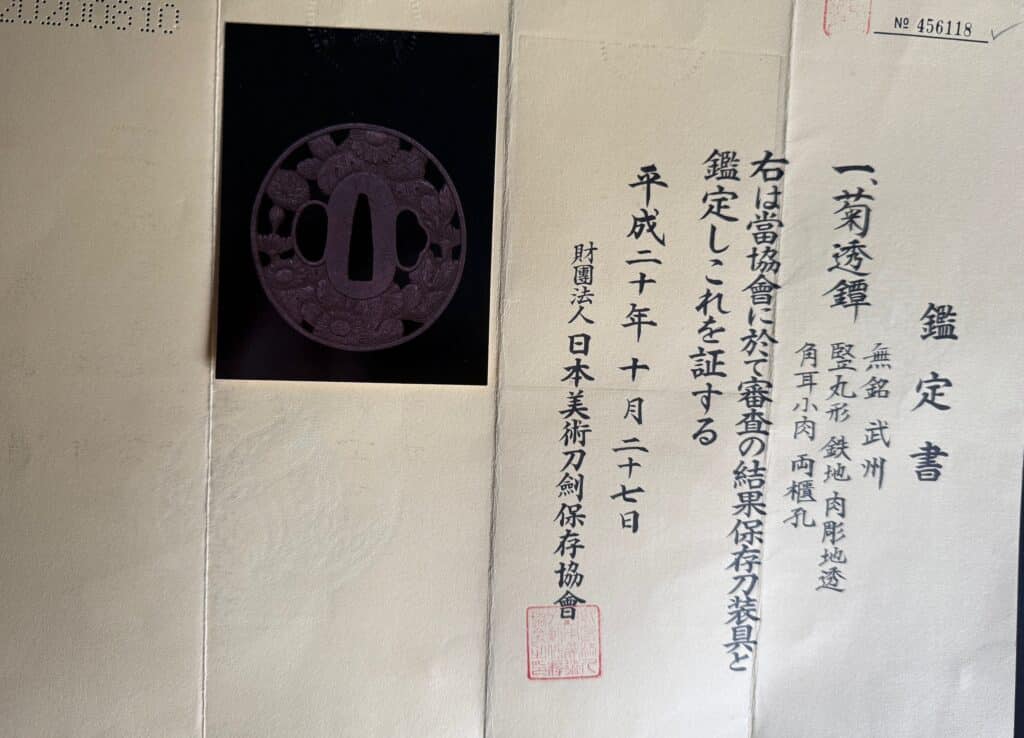 № 456118
鑑定書
一、菊透鐔
無銘 武州
竪丸形 鉄地 肉彫地透
角耳小肉 両櫃孔
右は當協會に於て審査の結果保存刀装具と
鑑定しこれを証する
平成二十年十月二十七日
財團法人 日本美術刀劍保存協會